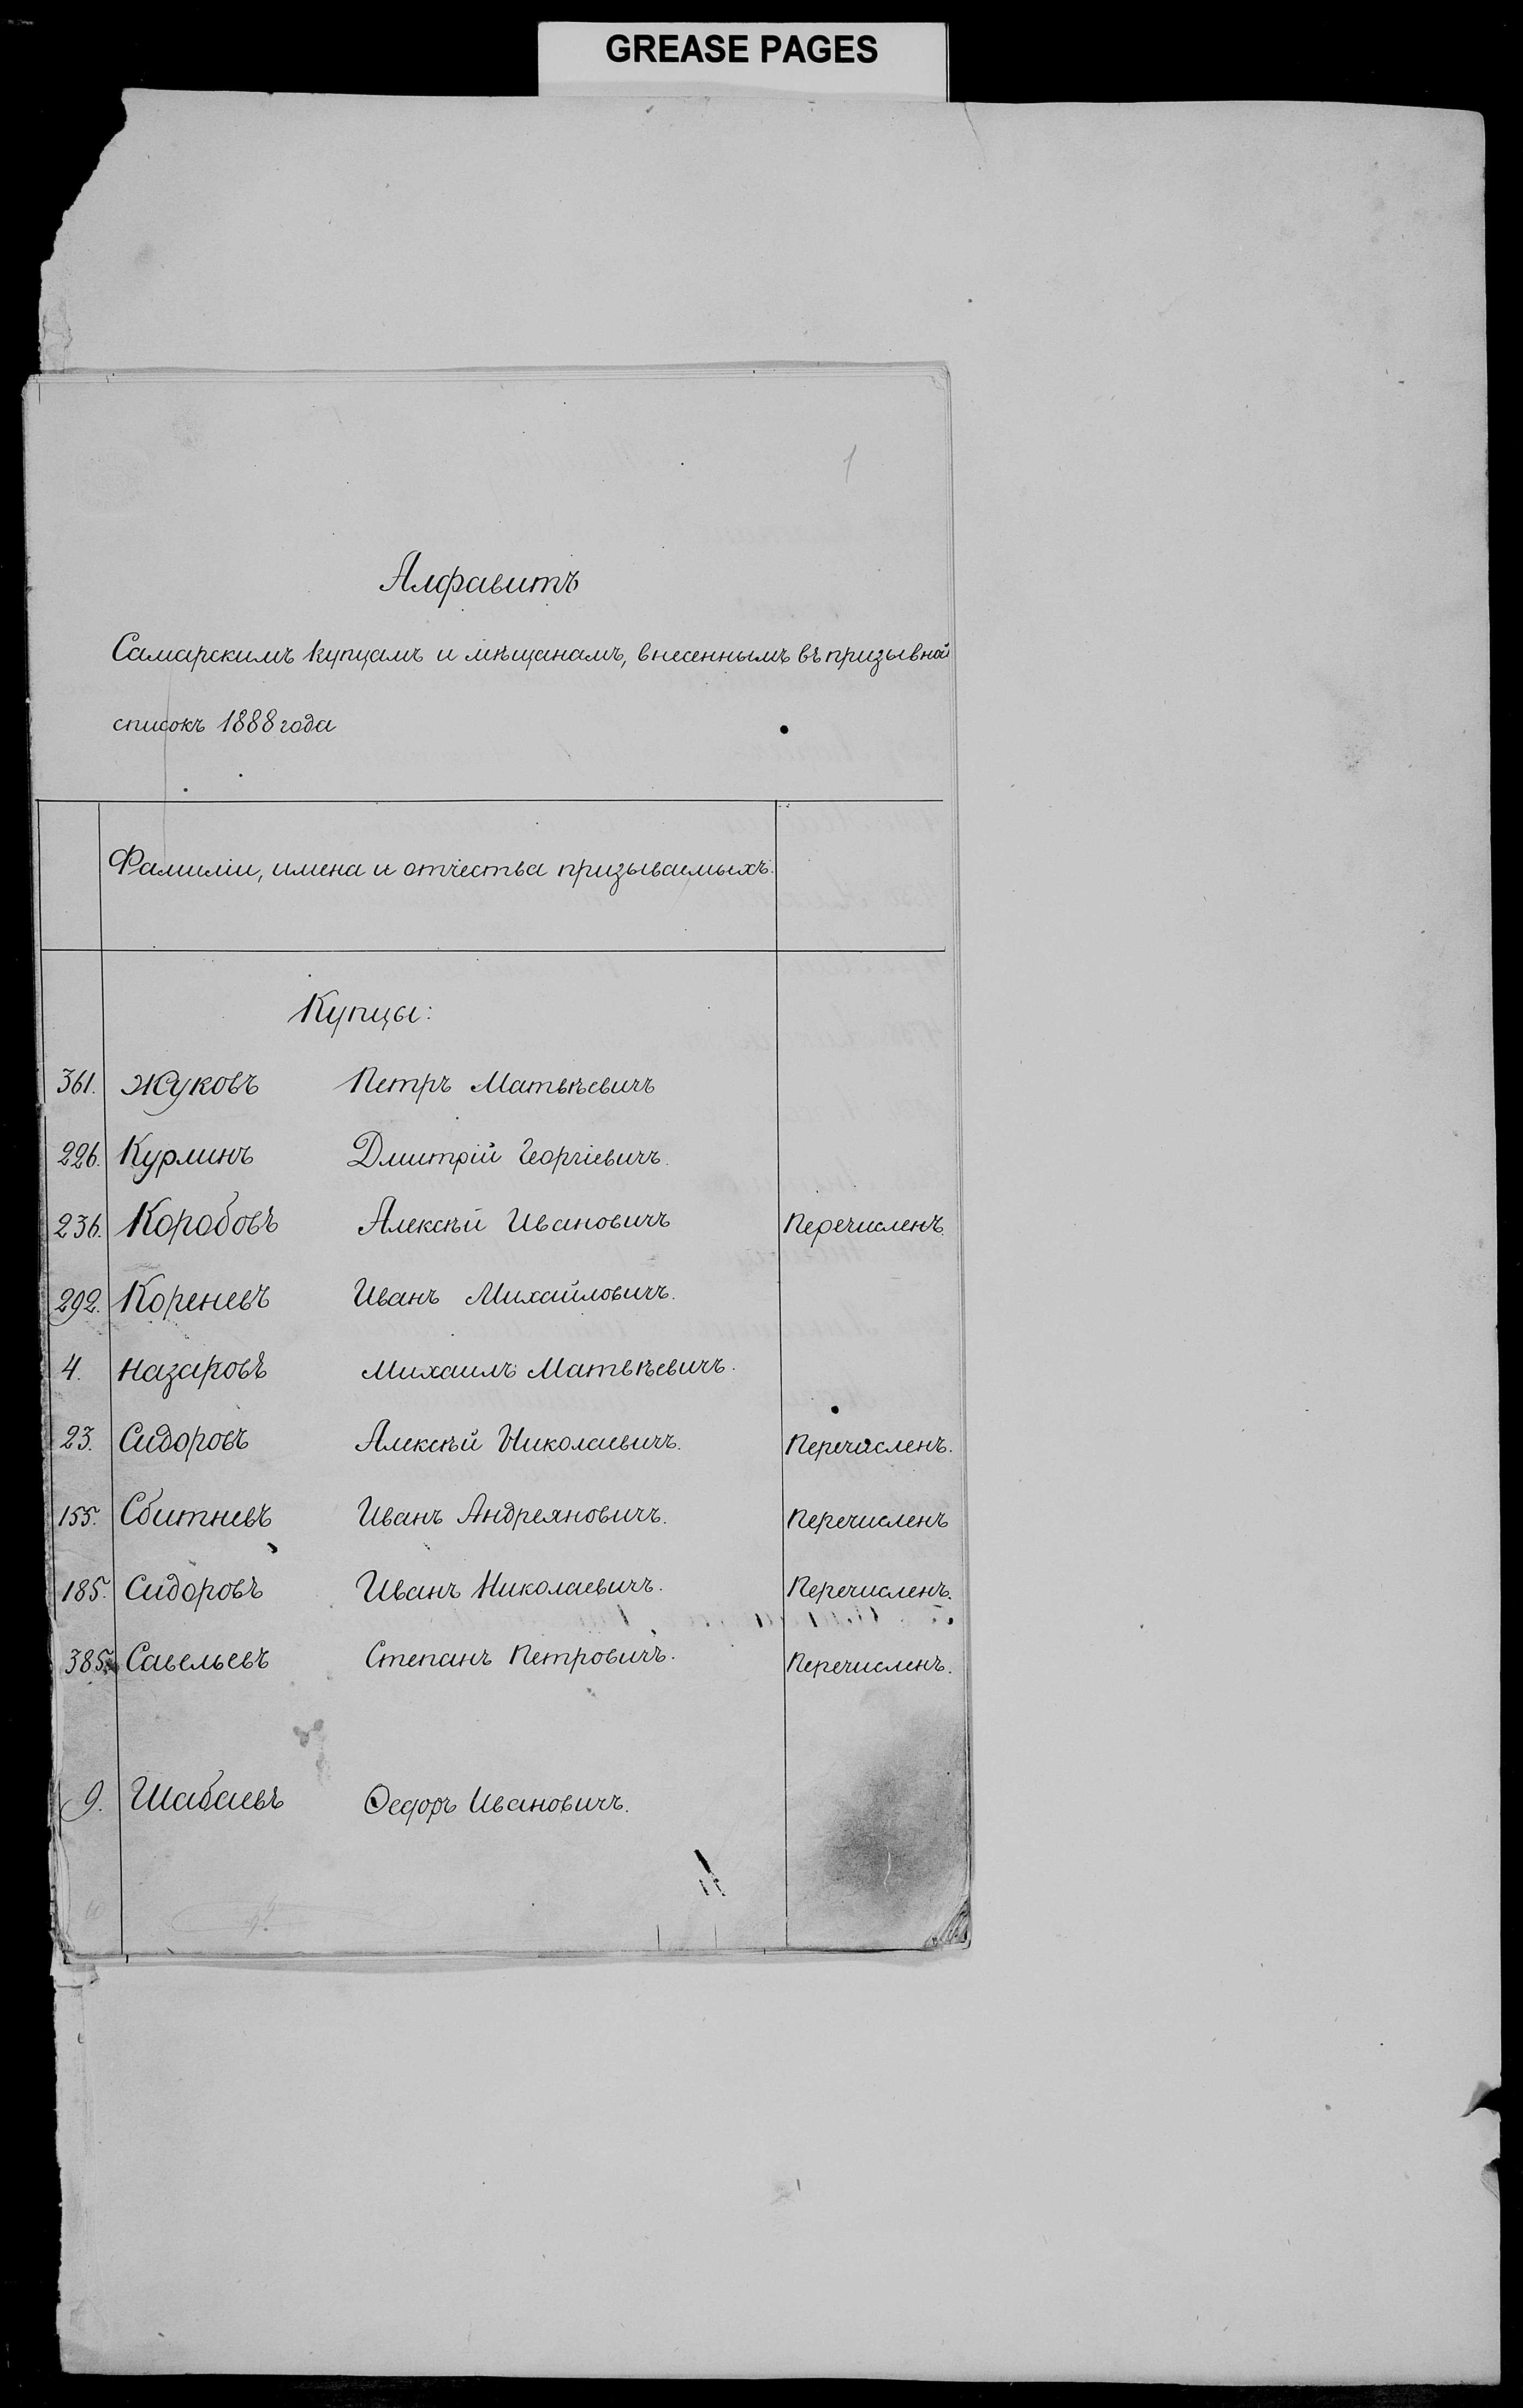 GREASE PAGES
1
Алфавитъ
Самарскимъ купцамъ и мѣщанамъ, внесеннымъ въ призывной
списокъ 1888 года
Фамиліи, имена и отчества призываемыхъ.
Купцы:
361. Жуковъ Петръ Матвѣевичъ
226. Курлинъ Дмитрій Георгіевичъ.
236. Коробовъ Алексѣй Ивановичъ Перечисленъ.
292. Кореневъ Иванъ Михайловичъ.
4. Назаровъ Михаилъ Матвѣевичъ.
23. Сидоровъ Алексѣй Николаевичъ. Перечисленъ.
155. Сбитневъ Иванъ Андреяновичъ. Перечисленъ
185. Сидоровъ Иванъ Николаевичъ. Перечисленъ.
385. Савельевъ Степанъ Петровичъ. Перечисленъ.
9. Шабаевъ Ѳедоръ Ивановичъ.